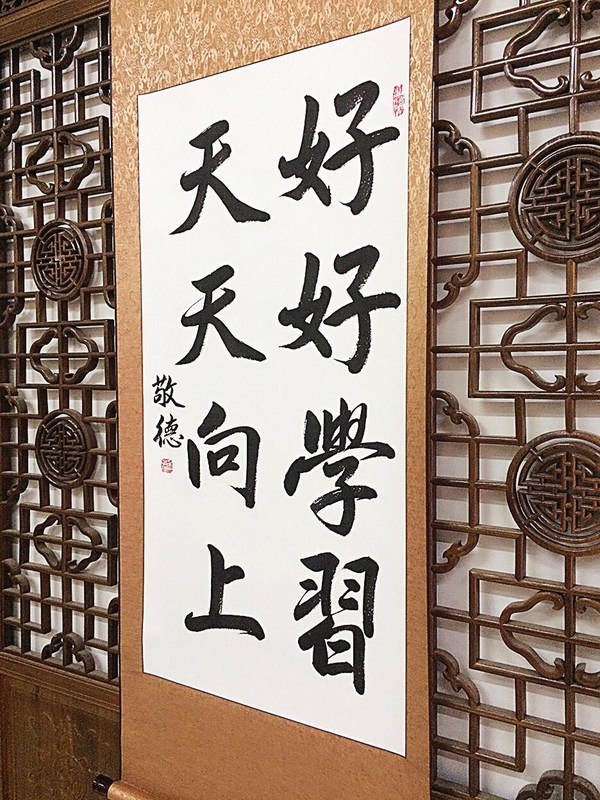 好好學習
天天向上
敬德